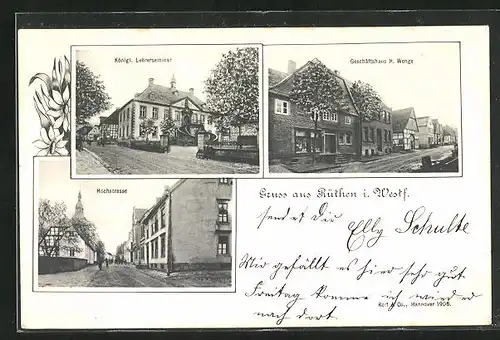 Königl. Lehrerseminar
Geschäftshaus P. Wenge
Hochstrasse
Gruss aus Rüthen i. Westf.
sendet Dir Elly Schulte
Mir gefällt es hier sehr gut
Freitag komme ich wieder
nach dort.
Karl & Co., Hannover 1906.